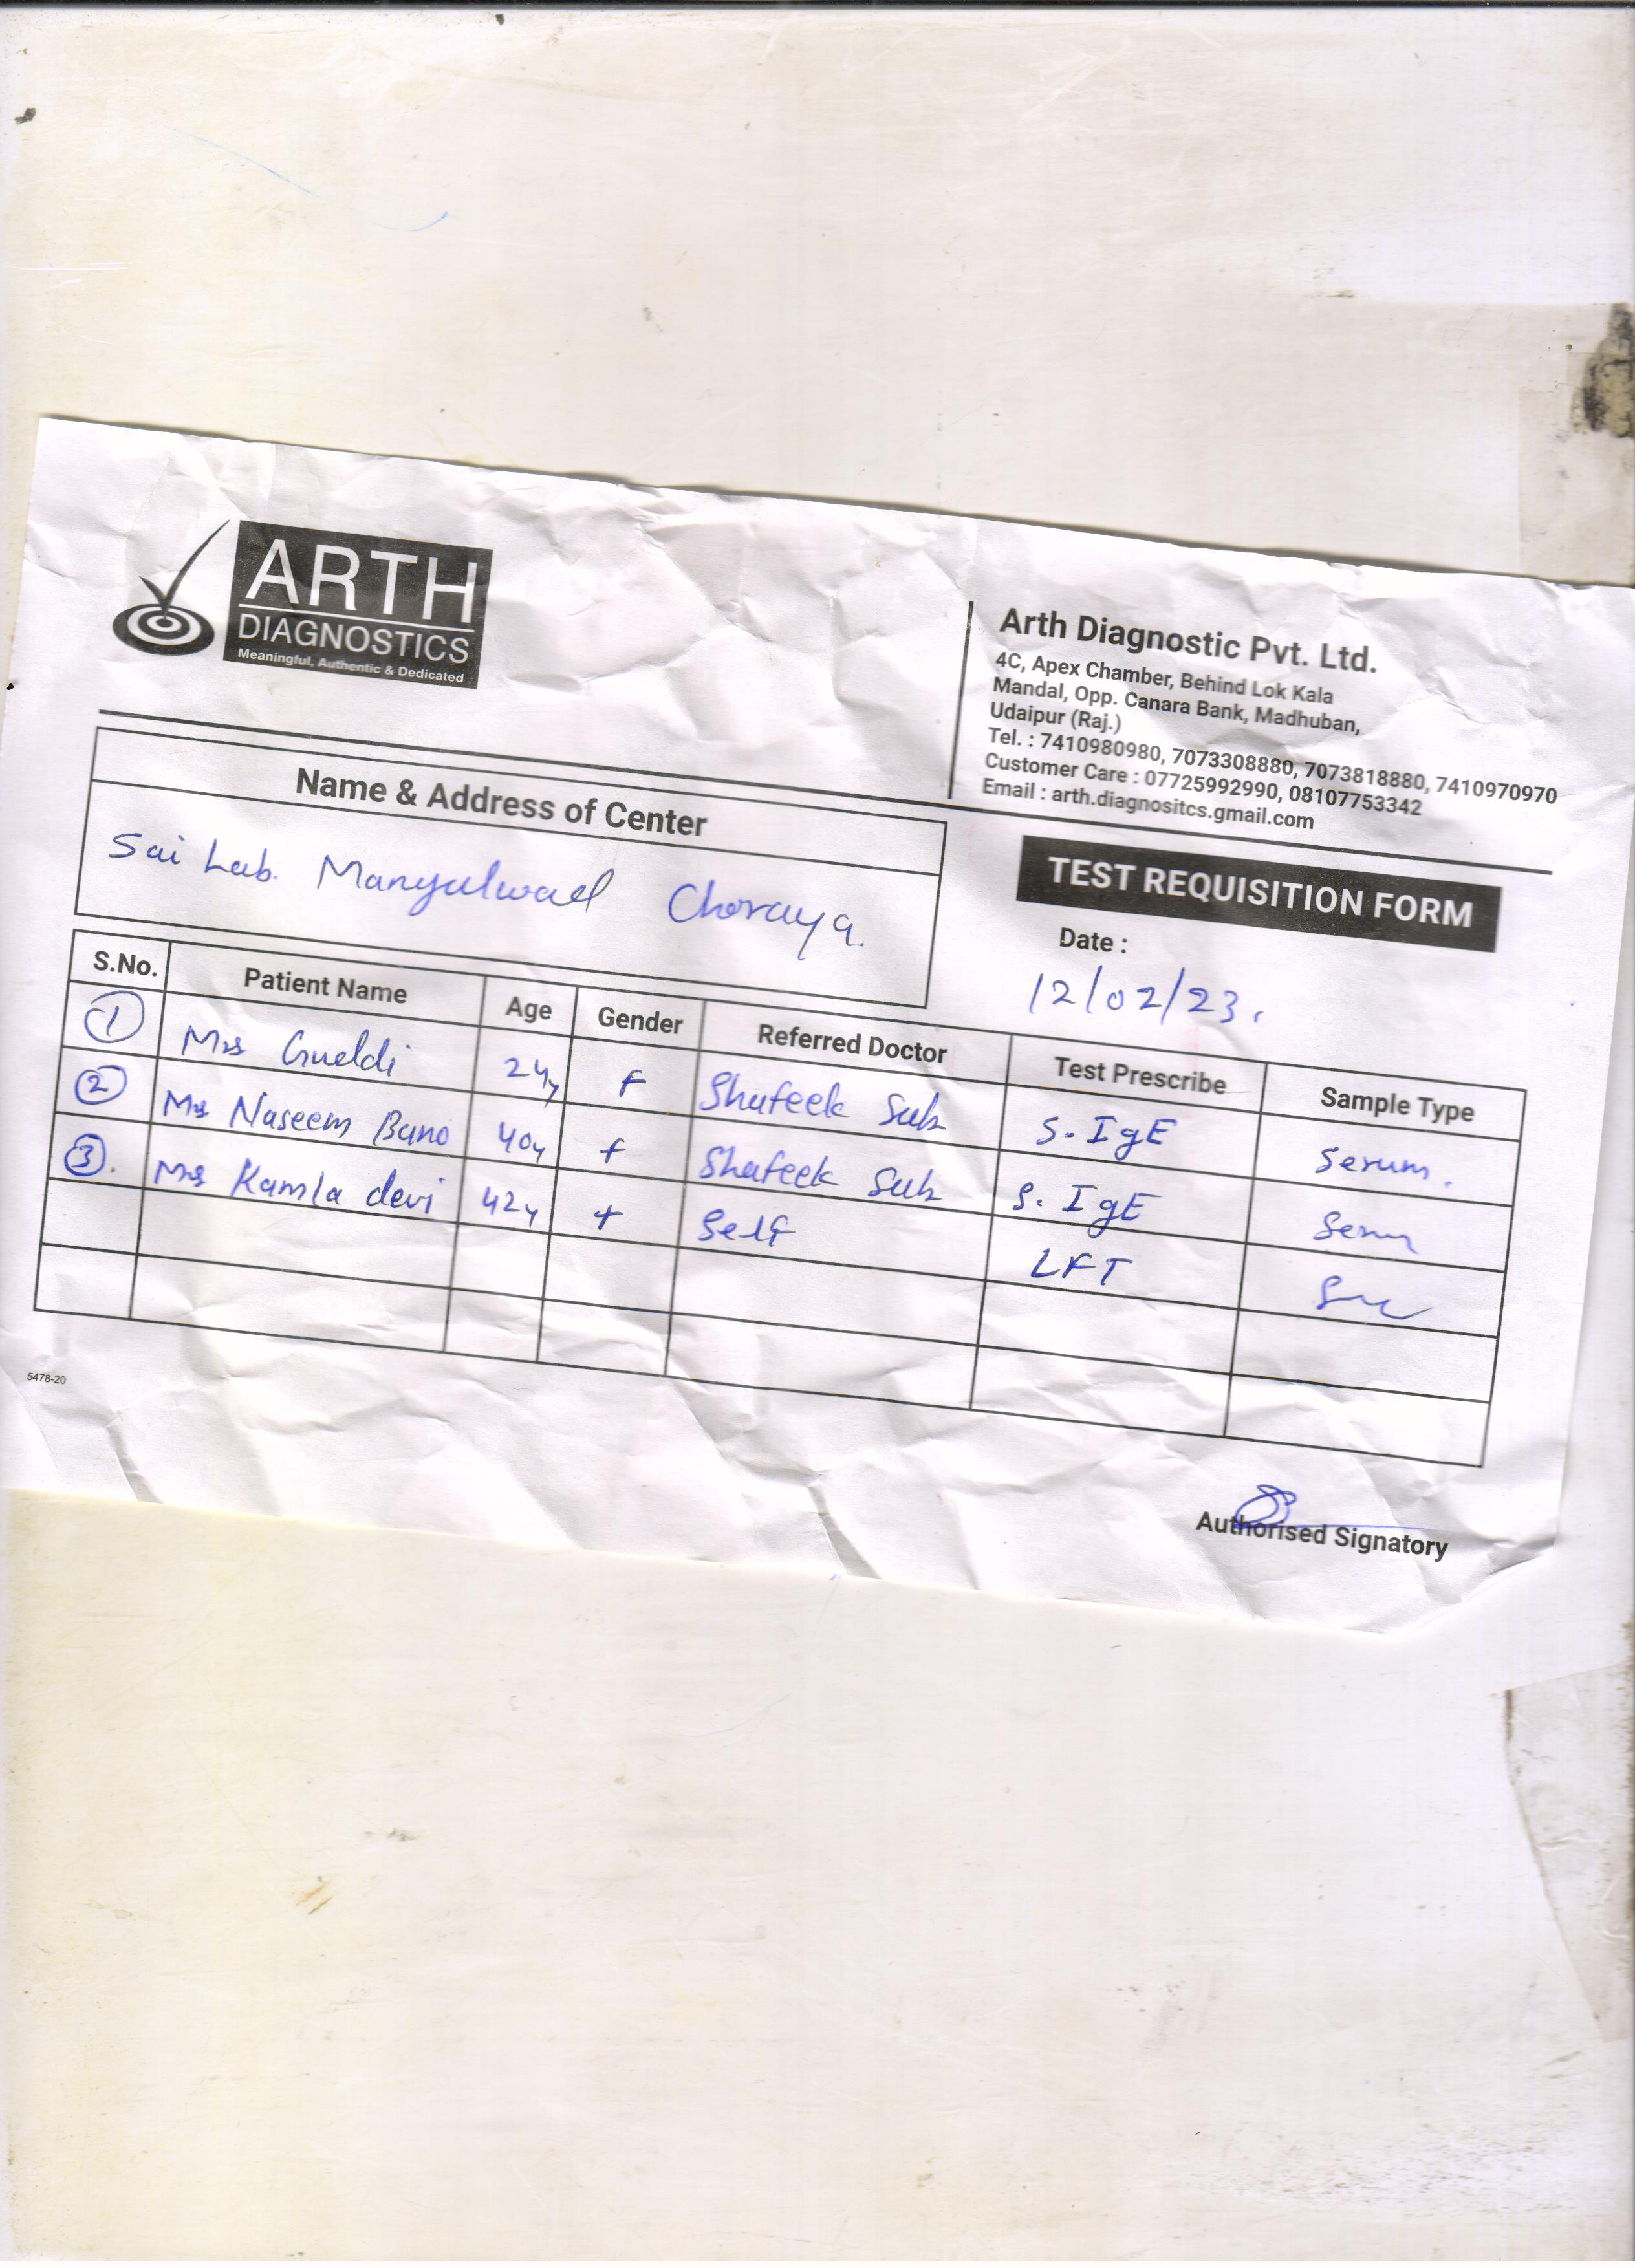 ARTH
DIAGNOSTICS
Meaningful, Authentic & Dedicated
Arth Diagnostic Pvt. Ltd.
4C, Apex Chamber, Behind Lok Kala
Mandal, Opp. Canara Bank, Madhuban,
Udaipur (Raj.)
Tel. : 7410980980, 7073308880, 7073818880, 7410970970
Customer Care : 07725992990, 08107753342
Email : arth.diagnositcs.gmail.com
Name & Address of Center
Sai Lab. Mangalwad Choraya.
TEST REQUISITION FORM
Date :
12/02/23.
S.No. Patient Name Age Gender Referred Doctor Test Prescribe Sample Type
1 Mrs 24y F Shafeek Sub S. IgE Serum.
2 Mrs Naseem Bano 40y F Shafeek Sub S. IgE Serum
3. Mrs Kamla devi 42y F Self LFT
5478-20
Authorised Signatory